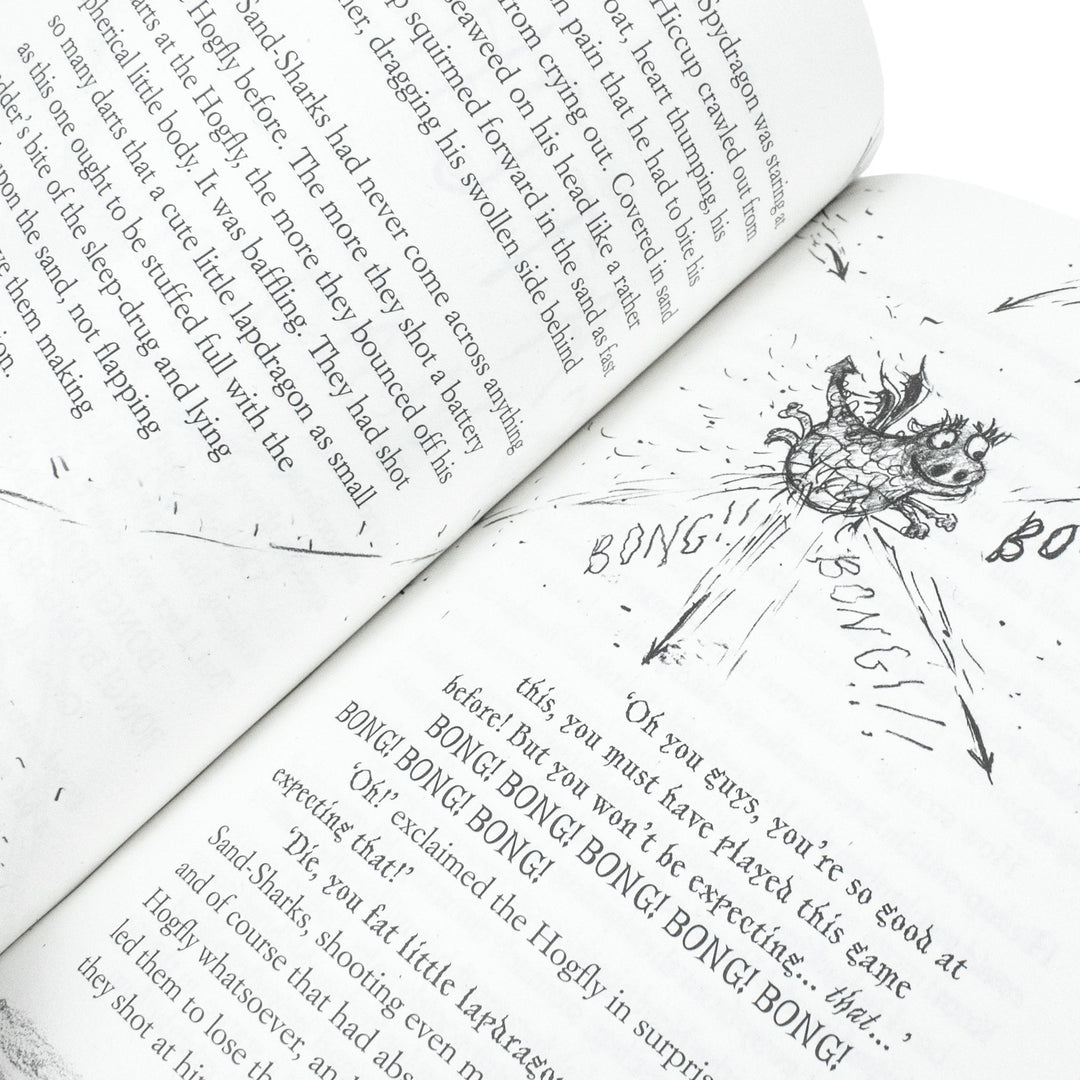 Spydragon was staring at
Hiccup crawled out from
oat, heart thumping, his
n pain that he had to bite his
from crying out. Covered in sand
on his head like a rather
p squirmed forward in the sand as fast
her, dragging his swollen side behind
Sand-Sharks had never come across anything
Hogfly before. The more they shot a battery
arts at the Hogfly, the more they bounced off his
pherical little body. It was baffling. They had shot
so many darts that a cute little lapdragon as small
as this one ought to be stuffed full with the
dder's bite of the sleep-drug and lying
upon the sand, not flapping
ve them making
ion.
BONG!!
BONG!!!
BO
'Oh you guys, you're so good at
this, you must have played this game
before! But you won't be expecting... that...'
BONG! BONG! BONG! BONG! BONG! BONG!
BONG! BONG! BONG! BONG!
'Oh!' exclaimed the Hogfly in surpris
expecting that!'
'Die, you fat little lapdrago
Sand-Sharks, shooting even m
and of course that had abs
Hogfly whatsoever, an
led them to lose th
they shot at hi